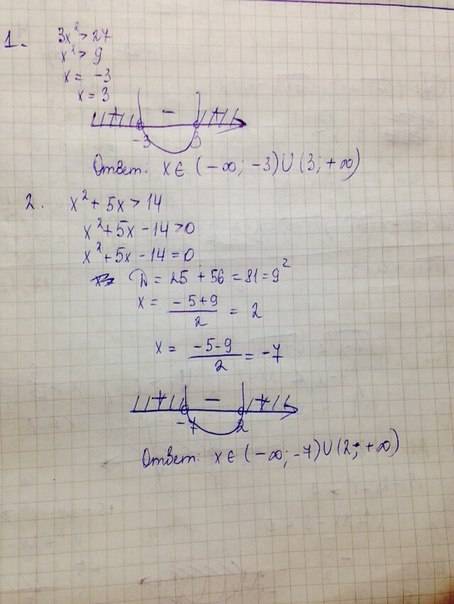 1. 3x² > 27
x² > 9
x = -3
x = 3
+ - +
-3 3
Ответ. x ∈ (-∞; -3) ∪ (3; +∞)
2. x² + 5x > 14
x² + 5x - 14 > 0
x² + 5x - 14 = 0
D = 25 + 56 = 81 = 9²
x = (-5+9)/2 = 2
x = (-5-9)/2 = -7
+ - +
-7 2
Ответ. x ∈ (-∞; -7) ∪ (2; +∞)